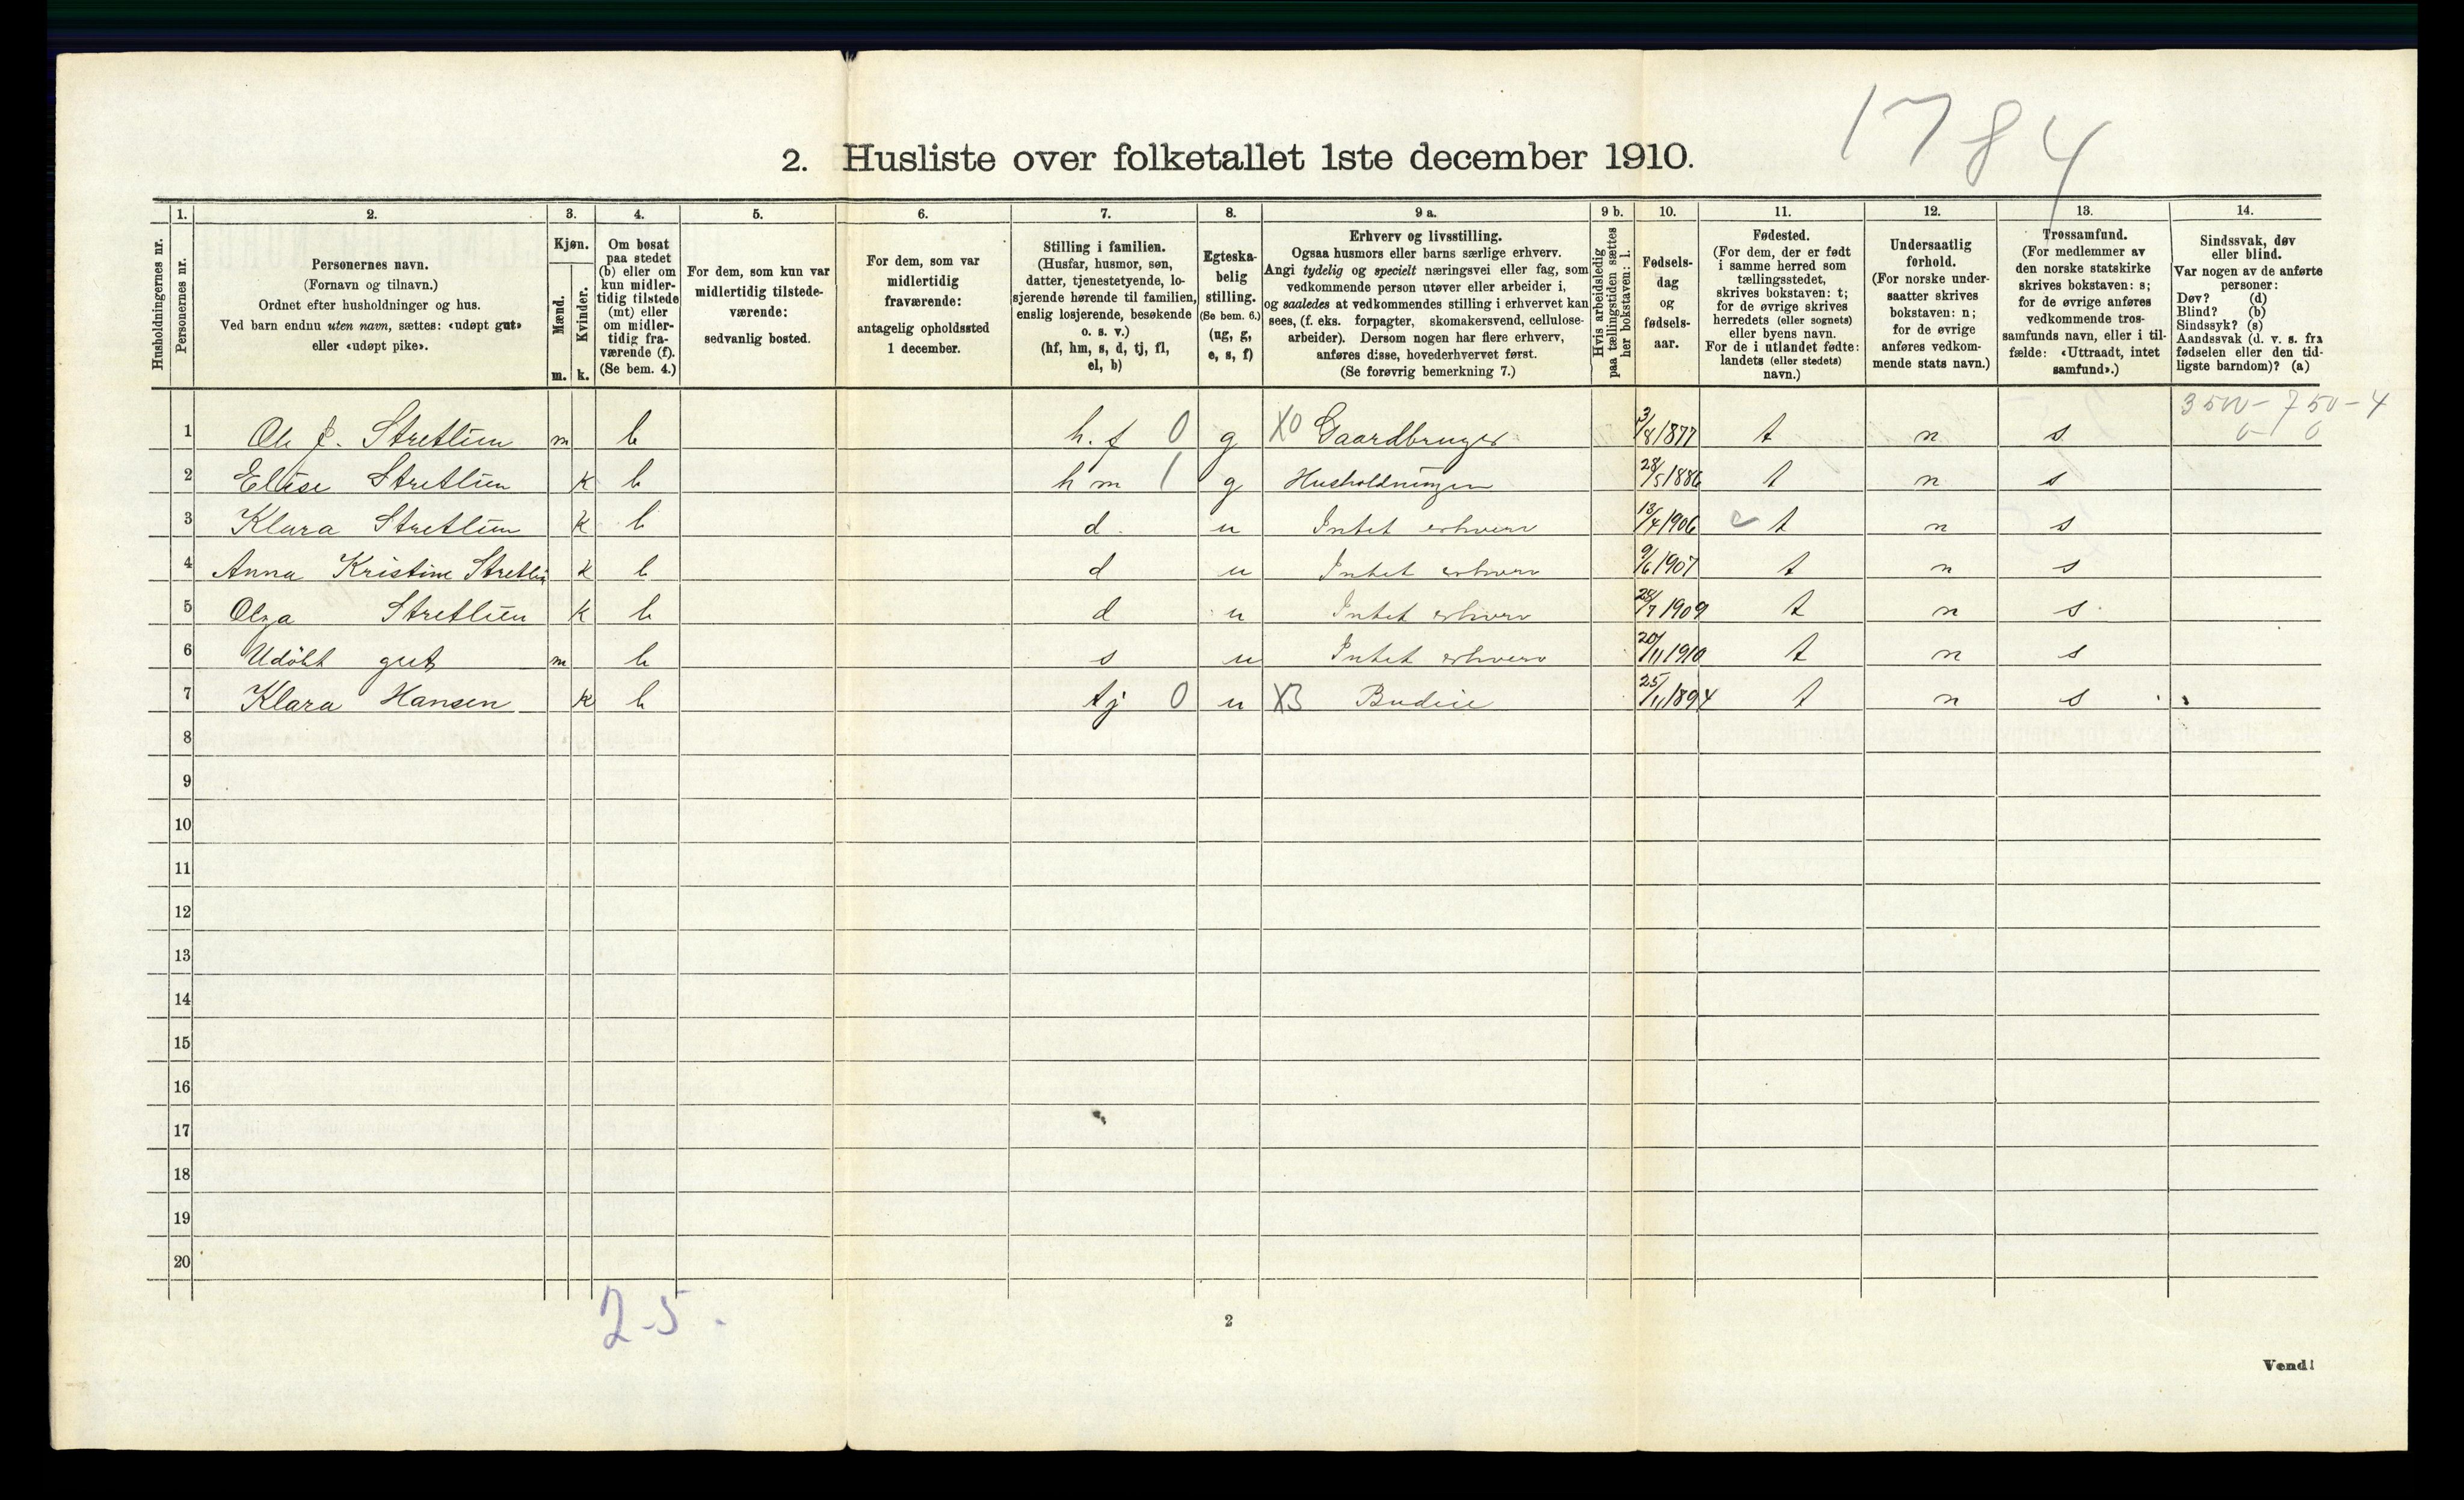 1784
2. Husliste over folketallet 1ste december 1910.
1. 2. 3. 4. 5. 6. 7. 8. 9 a. 9 b. 10. 11. 12. 13. 14.
Husholdningernes nr.
Personernes nr.
Personernes navn.
(Fornavn og tilnavn.)
Ordnet efter husholdninger og hus.
Ved barn endnu uten navn, sættes: «udøpt gut»
eller «udøpt pike».
Kjøn.
Mænd.
Kvinder.
m. k.
Om bosat
paa stedet
(b) eller om
kun midler-
tidig tilstede
(mt) eller
om midler-
tidig fra-
værende (f).
(Se bem. 4.)
For dem, som kun var
midlertidig tilstede-
værende:
sedvanlig bosted.
For dem, som var
midlertidig
fraværende:
antagelig opholdssted
1 december.
Stilling i familien.
(Husfar, husmor, søn,
datter, tjenestetyende, lo-
sjerende hørende til familien,
enslig losjerende, besøkende
o. s. v.)
(hf, hm, s, d, tj, fl,
el, b)
Egteska-
belig
stilling.
(Se bem. 6.)
(ug, g,
e, s, f)
Erhverv og livsstilling.
Ogsaa husmors eller barns særlige erhverv.
Angi tydelig og specielt næringsvei eller fag, som
vedkommende person utøver eller arbeider i,
og saaledes at vedkommendes stilling i erhvervet kan
sees, (f. eks. forpagter, skomakersvend, cellulose-
arbeider). Dersom nogen har flere erhverv,
anføres disse, hovederhvervet først.
(Se forøvrig bemerkning 7.)
Hvis arbeidsledig
paa tællingstiden sættes
her bokstaven: l.
Fødsels-
dag
og
fødsels-
aar.
Fødested.
(For dem, der er født
i samme herred som
tællingsstedet,
skrives bokstaven: t;
for de øvrige skrives
herredets (eller sognets)
eller byens navn.
For de i utlandet fødte:
landets (eller stedets)
navn.)
Undersaatlig
forhold.
(For norske under-
saatter skrives
bokstaven: n;
for de øvrige
anføres vedkom-
mende stats navn.)
Trossamfund.
(For medlemmer av
den norske statskirke
skrives bokstaven: s;
for de øvrige anføres
vedkommende tros-
samfunds navn, eller i til-
fælde: «Uttraadt, intet
samfund».)
Sindssvak, døv
eller blind.
Var nogen av de anførte
personer:
Døv? (d)
Blind? (b)
Sindssyk? (s)
Aandssvak (d. v. s. fra
fødselen eller den tid-
ligste barndom)? (a)
3500 - 750 - 4
0 - 0
1 Ole J. Stretlien m b h. f 0 g X0 Gaardbruger 3/8 1877 t n s
2 Elise Stretlien k b h m 1 g Husholdningen 28/5 1886 t n s
3 Klara Stretlien k b d u Intet erhverv 13/4 1906 t n s
4 Anna Kristine Stretlin k b d u Intet erhverv 9/6 1907 t n s
5 Olga Stretlien k b d u Intet erhverv 28/7 1909 t n s
6 Udøbt gut m b s u Intet erhverv 20/11 1910 t n s
7 Klara Hansen k b tj 0 u XB Budeie 25/11 1894 t n s
8
9
10
11
12
13
14
15
16
17
18
19
20
2-5.
2
Vend!